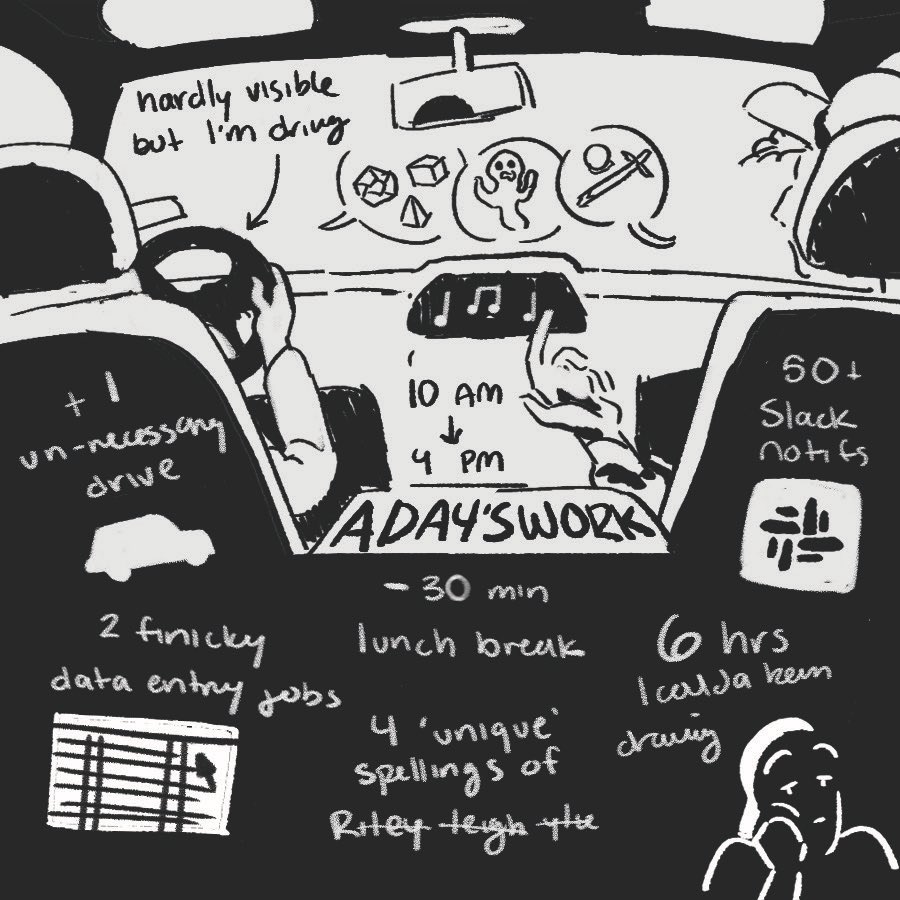 hardly visible
but I'm driving
10 AM
4 PM
A DAY'S WORK
+1
un-necessary
drive
50+
Slack
notifs
- 30 min
lunch break
2 finicky
data entry jobs
6 hrs
I coulda been
drawing
4 'unique'
spellings of
Riley